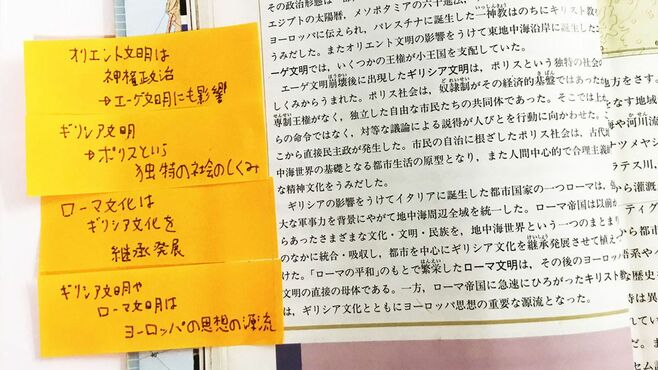 オリエント文明は
神権政治
→エーゲ文明にも影響
ギリシア文明
→ポリスという
独特の社会のしくみ
ローマ文化は
ギリシア文化を
継承発展
ギリシア文明や
ローマ文明は
ヨーロッパの思想の源流
その政治形態は
エジプトの太陽暦，メソポタミアの六十進法，
一神教はのちにキリスト教
ヨーロッパに伝えられ，パレスチナに誕生した
うみだした。またオリエント文明の影響をうけて東地中海沿岸に誕生した
ーゲ文明では，いくつかの王権が小王国を支配していた。
エーゲ文明崩壊後に出現したギリシア文明は，ポリスという独特の社会の
しくみからうまれた。ポリス社会は，奴隷制がその経済的基盤ではあったが
専制王権がなく，独立した自由な市民たちの共同体であった。そこでは上か
らの命令ではなく，対等な議論による説得が人びとを行動に向かわせた。こ
こから直接民主政が発生した。市民の自治に根ざしたポリス社会は，古代地
中海世界の基礎となる都市生活の原型となり，また人間中心的で合理主義的
な精神文化をうみだした。
ギリシアの影響をうけてイタリアに誕生した都市国家の一つローマは，
大な軍事力を背景にやがて地中海周辺全域を統一した。ローマ帝国は以前か
らあったさまざまな文化・文明・民族を，地中海世界という一つのまとまり
のなかに統合・吸収し，都市を中心にギリシア文化を継承発展させて植え
けた。「ローマの平和」のもとで繁栄したローマ文明は，その後のヨーロッ
文明の直接の母体である。一方，ローマ帝国に急速にひろがったキリスト教
は，ギリシア文化とともにヨーロッパ思想の重要な源流となった。